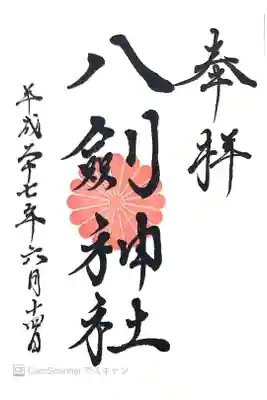 奉拝
八劍神社
平成二十七年六月十四日
CamScanner でスキャン